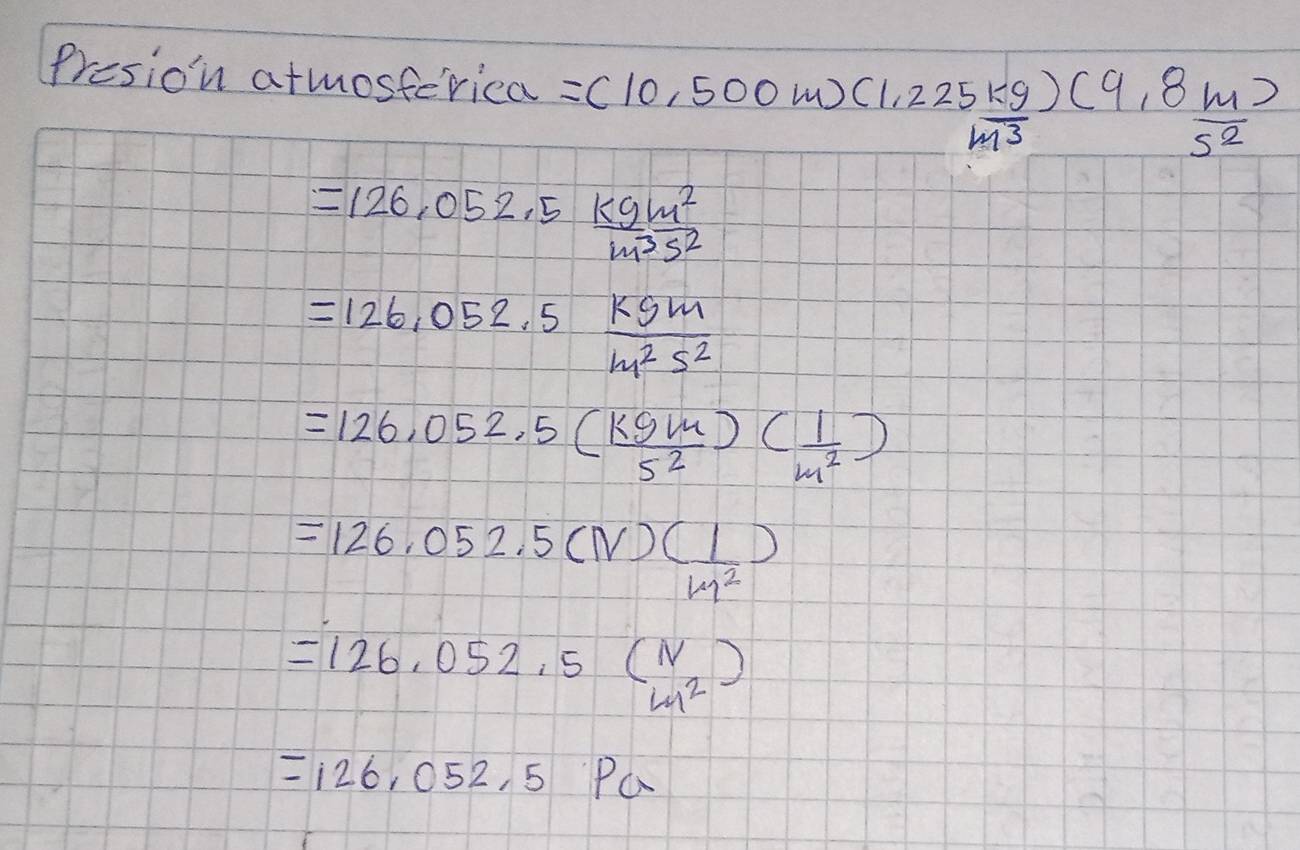 Presión atmosférica =(10,500m)(1,225kg/m³)(9,8m/s²)
=126,052,5 kgm²/m³s²
=126,052,5 kgm/m²s²
=126,052,5 (kgm/s²) (1/m²)
=126,052,5(N)(1/m²)
=126,052,5 (N/m²)
=126,052,5 Pa